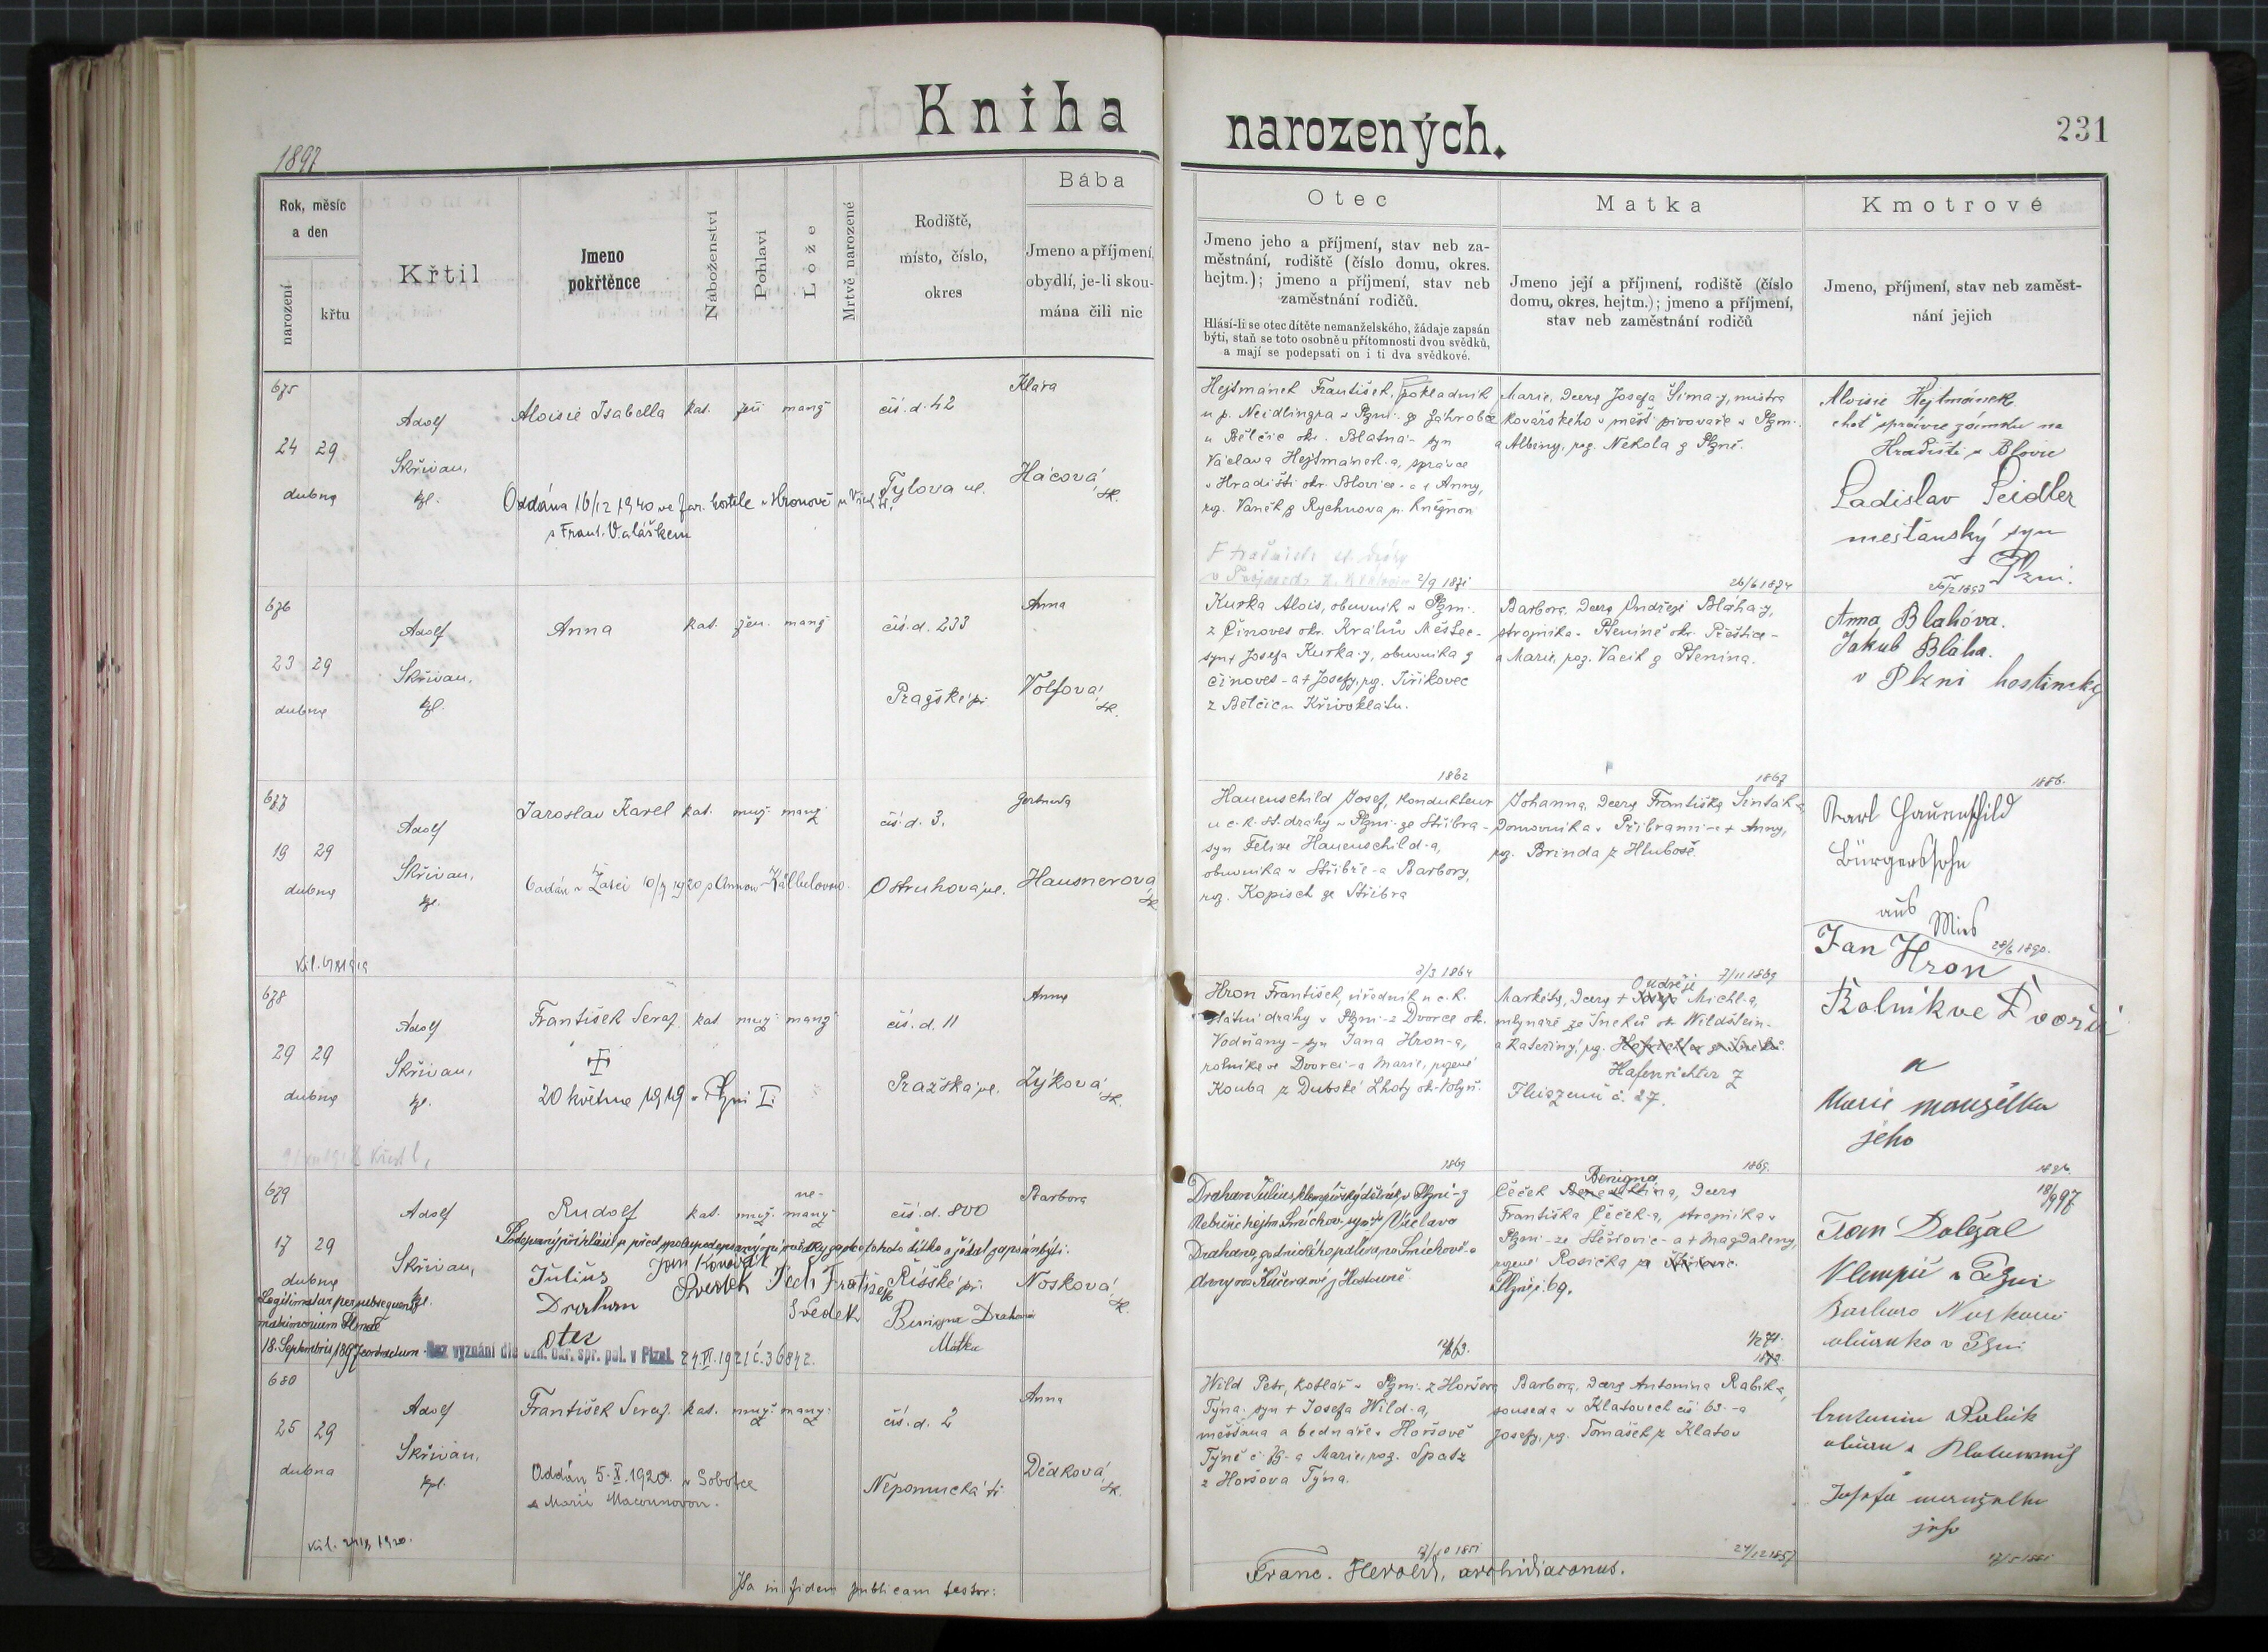 Kniha
narozených.
231
1897
Rok, měsíc
a den
narození
křtu
Křtil
Jmeno
pokřtěnce
Náboženství
Pohlaví
Lože
Mrtvě narozené
Rodiště,
místo, číslo,
okres
Bába
Jmeno a příjmení,
obydlí, je-li skou-
mána čili nic
Otec
Jmeno jeho a příjmení, stav neb za-
městnání, rodiště (číslo domu, okres.
hejtm.); jmeno a příjmení, stav neb
zaměstnání rodičů.
Hlásí-li se otec dítěte nemanželského, žádaje zapsán
býti, staň se toto osobně u přítomnosti dvou svědků,
a mají se podepsati on i ti dva svědkové.
Matka
Jmeno její a příjmení, rodiště (číslo
domu, okres. hejtm.); jmeno a příjmení,
stav neb zaměstnání rodičů
Kmotrové
Jmeno, příjmení, stav neb zaměst-
nání jejich
675
24 29
dubna
Adolf
Skřivan,
kpl.
Aloisie Isabella
kat. žen. manž
čís. d. 42
Tylova ul.
Klara
Hácová
sk.
Oddána 16/12 1940 ve far. kostele v Hronově
s Frant. Valáškem
Hejtmánek František, pokladník
u p. Neidlingra v Plzni - ze Záhrobí
u Bělčic okr. Blatná - syn
Václava Hejtmánek-a, správce
v Hradišti okr. Blovice - a Anny,
roz. Vaněk z Rychnova n. Kněžnou
2/9 1871
Marie, dcera Josefa Šíma-y, mistra
kovářského v měšť. pivovaře v Plzni
a Albiny, roz. Nekola z Plzně.
26/6 1874
Aloisie Hejtmánek
choť správce zámku na
Hradišti u Blovic
Ladislav Seidler
měšťanský syn
v Plzni.
676
23 29
dubna
Adolf
Skřivan,
kpl.
Anna
kat. žen. manž
čís. d. 233
Pražské př.
Anna
Volfová
sk.
Kurka Alois, obuvník v Plzni -
z Činoves okr. Králův Městec -
syn + Josefa Kurka-y, obuvníka z
Činoves - a + Josefy, roz. Jiříkovec
z Belčic u Křivoklátu.
1862
Barbora, dcera Ondřeje Bláha-y,
strojníka v Ptenině okr. Přeštice -
a Marie, roz. Vacík z Ptenína.
1867
Anna Blahóva.
Jakub Bláha.
v Plzni hostinský
1886.
677
19 29
dubna
Adolf
Skřivan,
kpl.
Jaroslav Karel
kat. muž. manž
čís. d. 3.
Ostruhova ul.
Gertruda
Hausnerová
sk.
Hauenschild Josef, kondukteur
u c. k. st. dráhy v Plzni - ze Stříbra -
syn Felixe Hauenschild-a,
obuvníka v Stříbře - a Barbory,
roz. Kopisch ze Stříbra
3/3 1864
Johanna, dcera Františka Sinták-a
domovníka v Příbrami - a + Anny,
roz. Brinda z Hluboše
7/11 1869
Karl Hauenschild
Bürgerssohn
aus Mies
28/6 1890.
678
29 29
dubna
Adolf
Skřivan,
kpl.
František Seraf.
kat. muž. manž
čís. d. 11
Pražská ul.
Anna
Zýková
sk.
20 května 1919 v Plzni I.
Hron František, úředník u c. k.
státní dráhy v Plzni - z Dvorce ok.
Vodňany - syn Jana Hron-a,
rolníka ve Dvorci - a Marie, rozené
Kouba z Dubské Lhoty ok. Volyň.
1869
Ondřeje
Markéta, dcera + Michl-a,
mlynáře ze Šneků ok. Wildstein -
a Kateřiny, roz.
Hafenrichter z
č. 27.
1869.
Jan Hron
Rolník ve Dvorci
a
Marie manželka
jeho
679
17 29
dubna
Adolf
Skřivan,
kpl.
Rudolf
kat. muž. ne-
manž
čís. d. 800
Říšské př.
Barbora
Nosková
sk.
Podepsaný přihlásil se před spolupodepsanými svědky za otce tohoto dítka a žádal zapsán býti.
Julius
Drahan
otec
Jan Konovář
Svědek
Svědek
Benigna Drahan
Matka
Legitimatur per subsequens
matrimonium
18. Septembris 1897 contractum.
Bez vyznání dle ozn. okr. spr. pol. v Plzni. 24.VI.1921 č. 36842.
Drahan Julius, klempířský dělník v Plzni - z
Nebušic hejtm. Smíchov, syn Václava
Drahana, na Smíchově - a
Anny roz. Kučerové z Hostouně
Benigna
Čeček
dcera
Františka Čeček-a, strojníka v
Plzni - ze - a + Magdaleny,
rozené Rosička z
Plzně č. 69.
18/9 97
Jan Doležal
klempíř v Plzni
Barbora Nosková
v Plzni
680
25 29
dubna
Adolf
Skřivan,
kpl.
František Seraf.
kat. muž. manž.
čís. d. 2
Nepomucká tř.
Anna
Dědková
sk.
Oddán 5. X. 1920 v Sobotce
s Marií Macounovou.
Wild Petr, kotlář v Plzni - z Horšova
Týna - syn + Josefa Wild-a,
měšťana a bednáře v Horšově
Týně č. - a Marie, roz. Spatz
z Horšova Týna.
Barbora, dcera Antonína Rabík-a,
souseda v Klatovech čís. 63 - a
Josefy, roz. Tomášek z Klatov
24/12 1857
Antonín Rabík
Josefa manželka
jeho
Ita in fidem publicam testor:
Franc. Herold, archidiaconus.